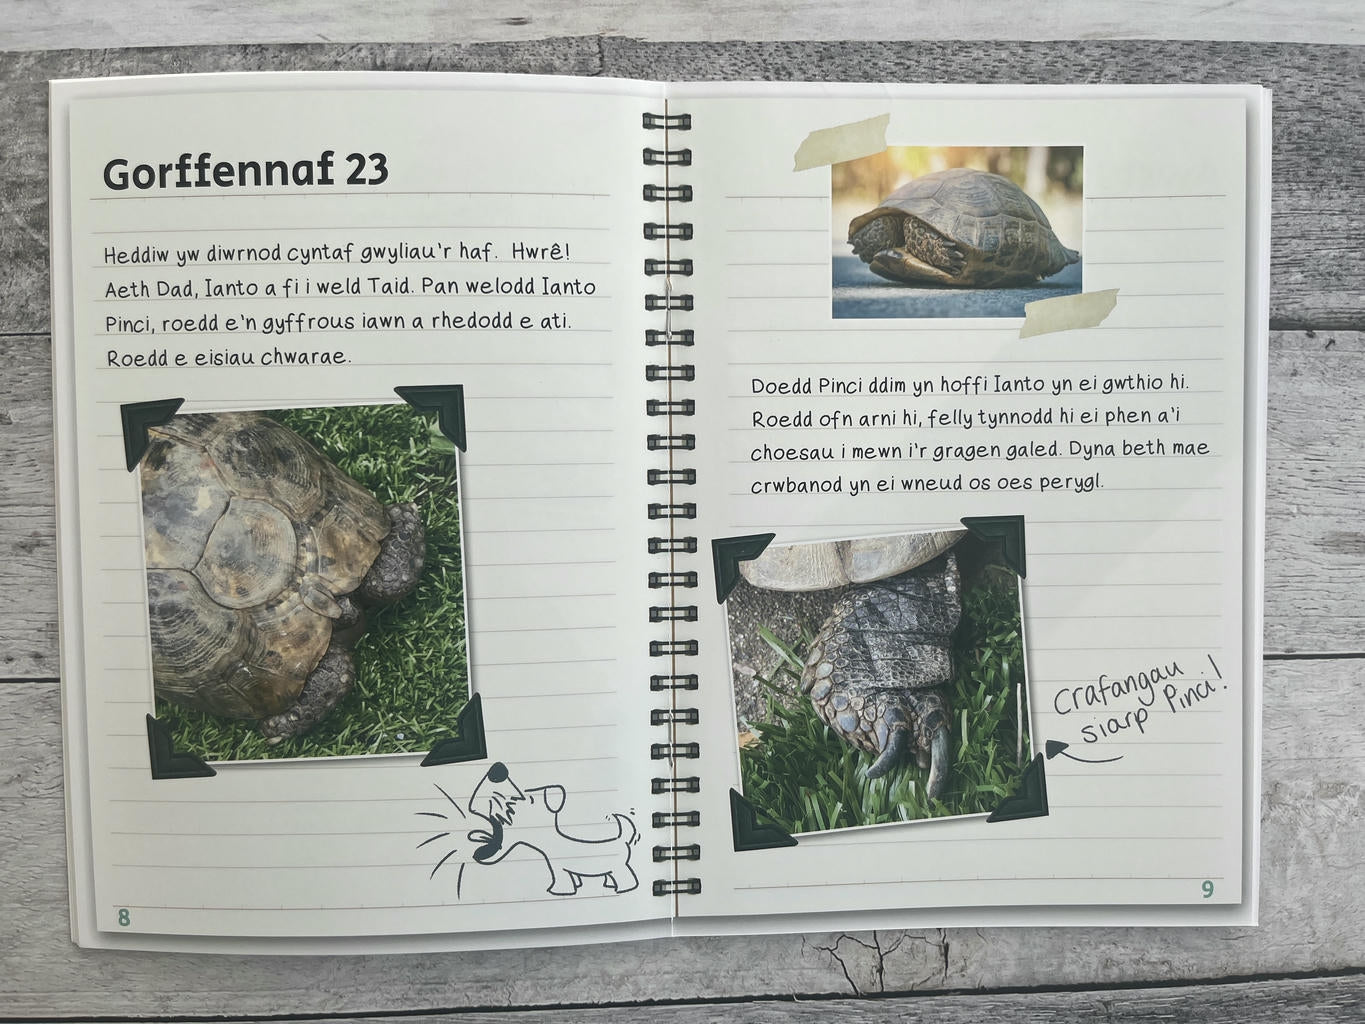 Gorffennaf 23
Heddiw yw diwrnod cyntaf gwyliau'r haf. Hwrê!
Aeth Dad, Ianto a fi i weld Taid. Pan welodd Ianto
Pinci, roedd e'n gyffrous iawn a rhedodd e ati.
Roedd e eisiau chwarae.
8
Doedd Pinci ddim yn hoffi Ianto yn ei gwthio hi.
Roedd ofn arni hi, felly tynnodd hi ei phen a'i
choesau i mewn i'r gragen galed. Dyna beth mae
crwbanod yn ei wneud os oes perygl.
Crafangau
siarp Pinci!
9